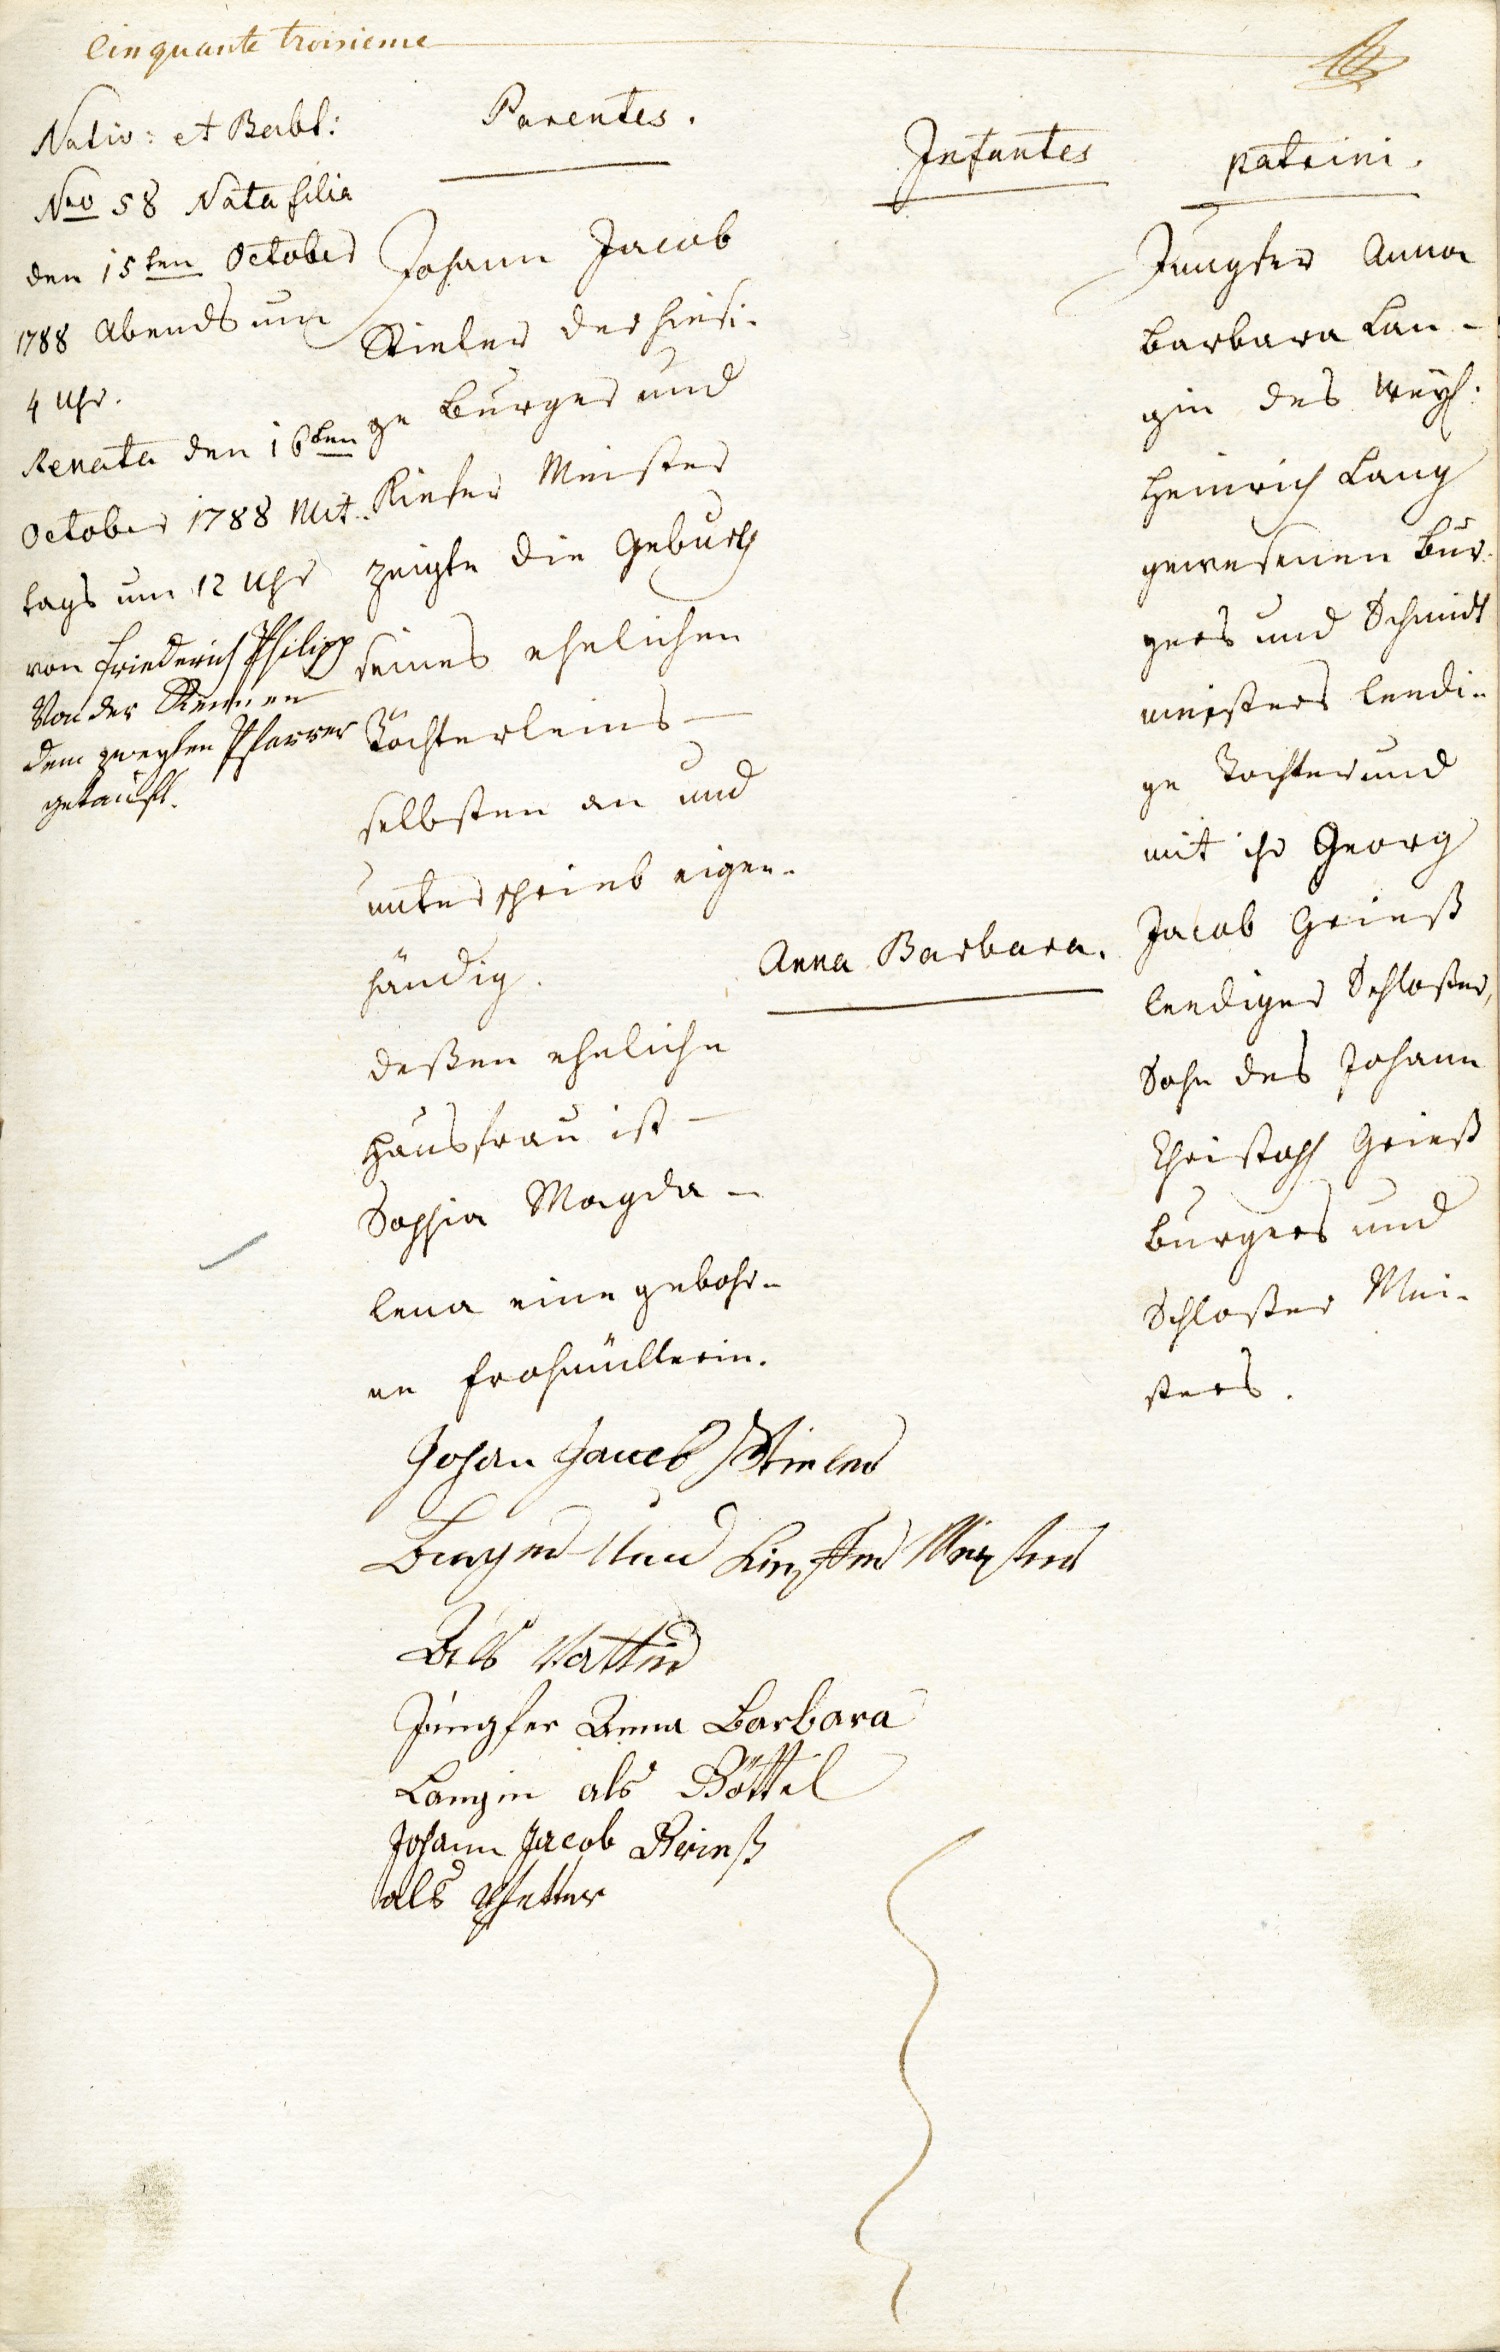 Cinquante troisieme
Nativ: et Babt:
Nro 58 Nata filia
den 15ten October
1788 Abends um
4 Uhr.
Renata den 16ten
October 1788 Mit-
tags um 12 Uhr
von Friederich Philipp
Von der
dem zweyten Pfarrer
getauft.
Parentes.
Johann Jacob
Stieler der hiesi-
ge Burger und
Kiefer Meister
zeigte die Geburth
seines ehelichen
Töchterleins
selbsten an und
unterschrieb eigen-
händig.
deßen eheliche
Hausfrau ist
Sophia Magda-
lena eine gebohr-
ne Frohmüllerin.
Johan Jacob Stieler
Burger Und Meister
Als Vatter
Jungfer Anna Barbara
Langin als Göttel
Johann Jacob Grieß
als Pfetter
Infantes
Anna Barbara.
patrini.
Jungfer Anna
Barbara Lan-
gin des weyl:
Heinrich Lang
gewesenen Bur-
gers und Schmidt
meisters leedi-
ge Tochter und
mit ihr Georg
Jacob Grieß
leediger Schloßer,
Sohn des Johann
Christoph Grieß
Burgers und
Schloßer Mei-
sters.